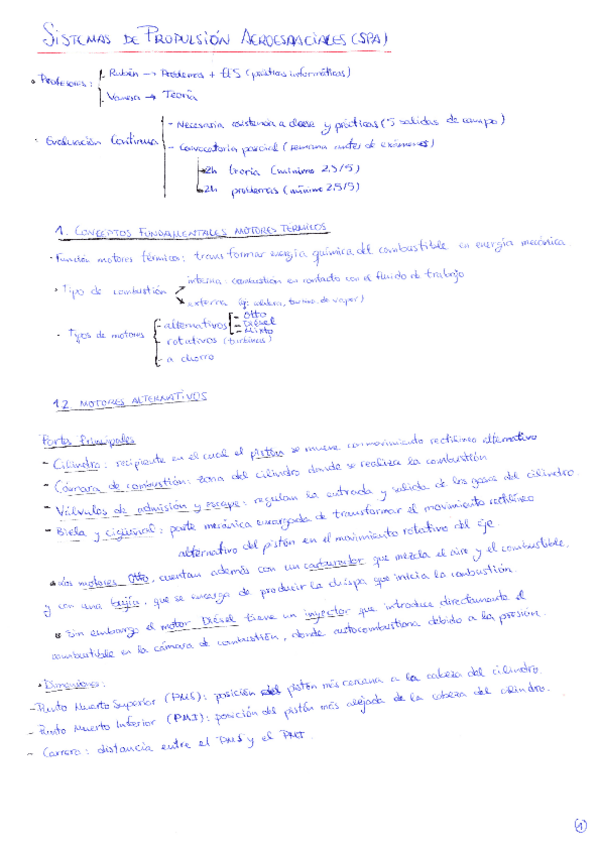 SISTEMAS DE PROPULSIÓN AEROESPACIALES (SPA)
• Profesores: Rubén → Problemas + EJS (prácticas informáticas)
Vanesa → Teoría
• Evaluación Continua - Necesaria asistencia a clase y prácticas (5 salidas de campo)
- Convocatoria parcial (semana antes de exámenes)
2h teoría (mínimo 2,5/5)
2h problemas (mínimo 2,5/5)
1. CONCEPTOS FUNDAMENTALES MOTORES TÉRMICOS
• Función motores térmicos: transformar energía química del combustible en energía mecánica
• Tipo de combustión interna: combustión en contacto con el fluido de trabajo
externa (ej: caldera, turbina de vapor)
• Tipos de motores - alternativos - Otto
- Diésel
- Mixto
- rotativos (turbinas)
- a chorro
1.2. MOTORES ALTERNATIVOS
Partes Principales
- Cilindro: recipiente en el cual el pistón se mueve con movimiento rectilíneo alternativo
- Cámara de combustión: zona del cilindro donde se realiza la combustión
- Válvulas de admisión y escape: regulan la entrada y salida de los gases del cilindro.
- Biela y cigüeñal: parte mecánica encargada de transformar el movimiento rectilíneo
alternativo del pistón en el movimiento rotativo del eje.
• Los motores Otto, cuentan además con un carburador que mezcla el aire y el combustible,
y con una bujía, que se encarga de producir la chispa que inicia la combustión.
• Sin embargo el motor Diésel tiene un inyector que introduce directamente el
combustible en la cámara de combustión, donde autocombustiona debido a la presión.
• Dimensiones:
- Punto Muerto Superior (PMS): posición del pistón más cercana a la cabeza del cilindro.
- Punto Muerto Inferior (PMI): posición del pistón más alejada de la cabeza del cilindro.
- Carrera: distancia entre el PMS y el PMI.
1